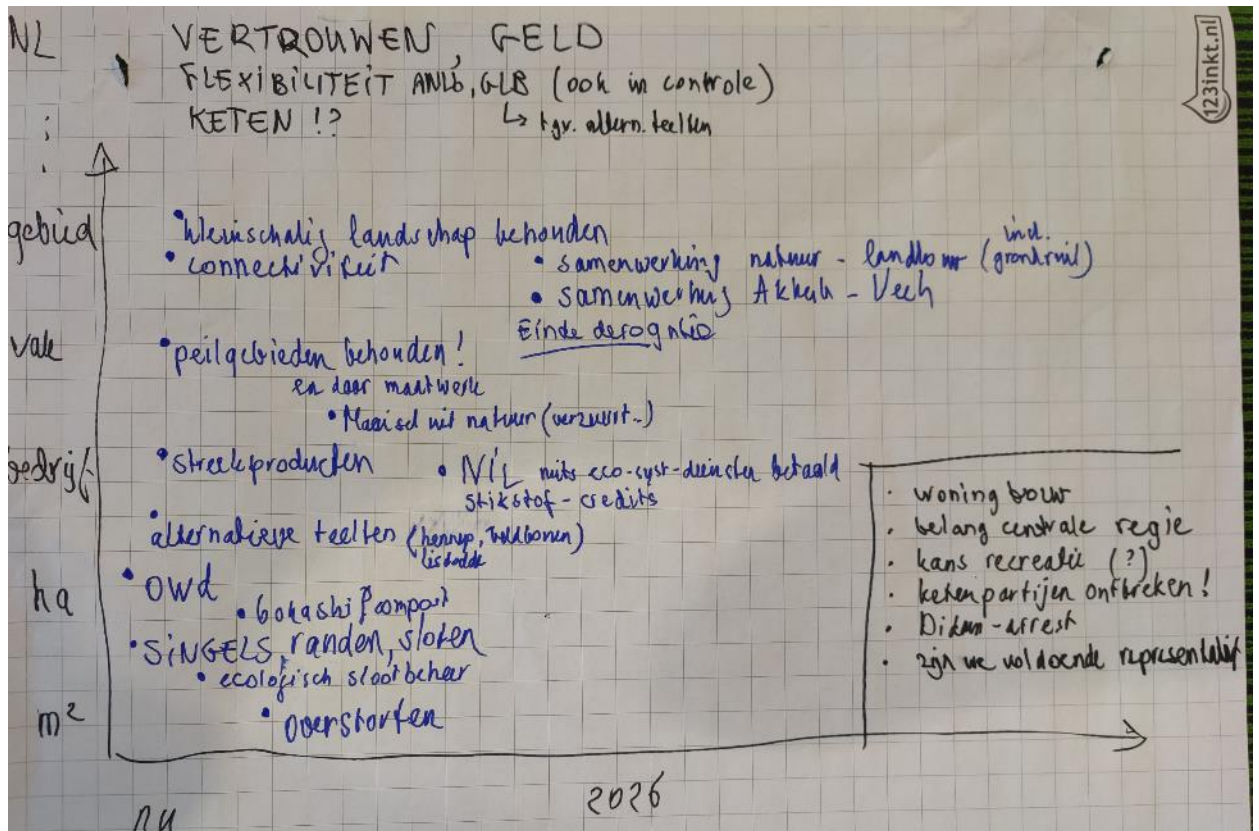 NL
VERTROUWEN, GELD
FLEXIBILITEIT ANLb, GLB (ook in controle)
↳ tgv. altern. teelten
KETEN !?
123inkt.nl
gebied
• kleinschalig landschap behouden
• connectiviteit
• samenwerking natuur - landbouw (incl. grondruil)
• samenwerking Akkerb - Veeh
Einde derogatie
• peilgebieden behouden!
en daar maatwerk
• Maaisel uit natuur (verzuurt..)
bedrijf
• streekproducten
• NIL mits eco-syst-diensten betaald
stikstof-credits
• alternatieve teelten (hennep, veldbonen)
lisdodde
ha
• OWD
• bokashi / compost
• SINGELS, randen, sloten
• ecologisch slootbeheer
m²
• overstorten
• woningbouw
• belang centrale regie
• kans recreatie (?)
• ketenpartijen ontbreken!
• Didam-arrest
• zijn we voldoende representatief
nu
2026